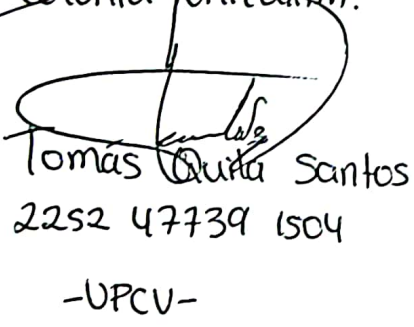 Tomás Quitá Santos
2252 47739 1504
-UPCV-